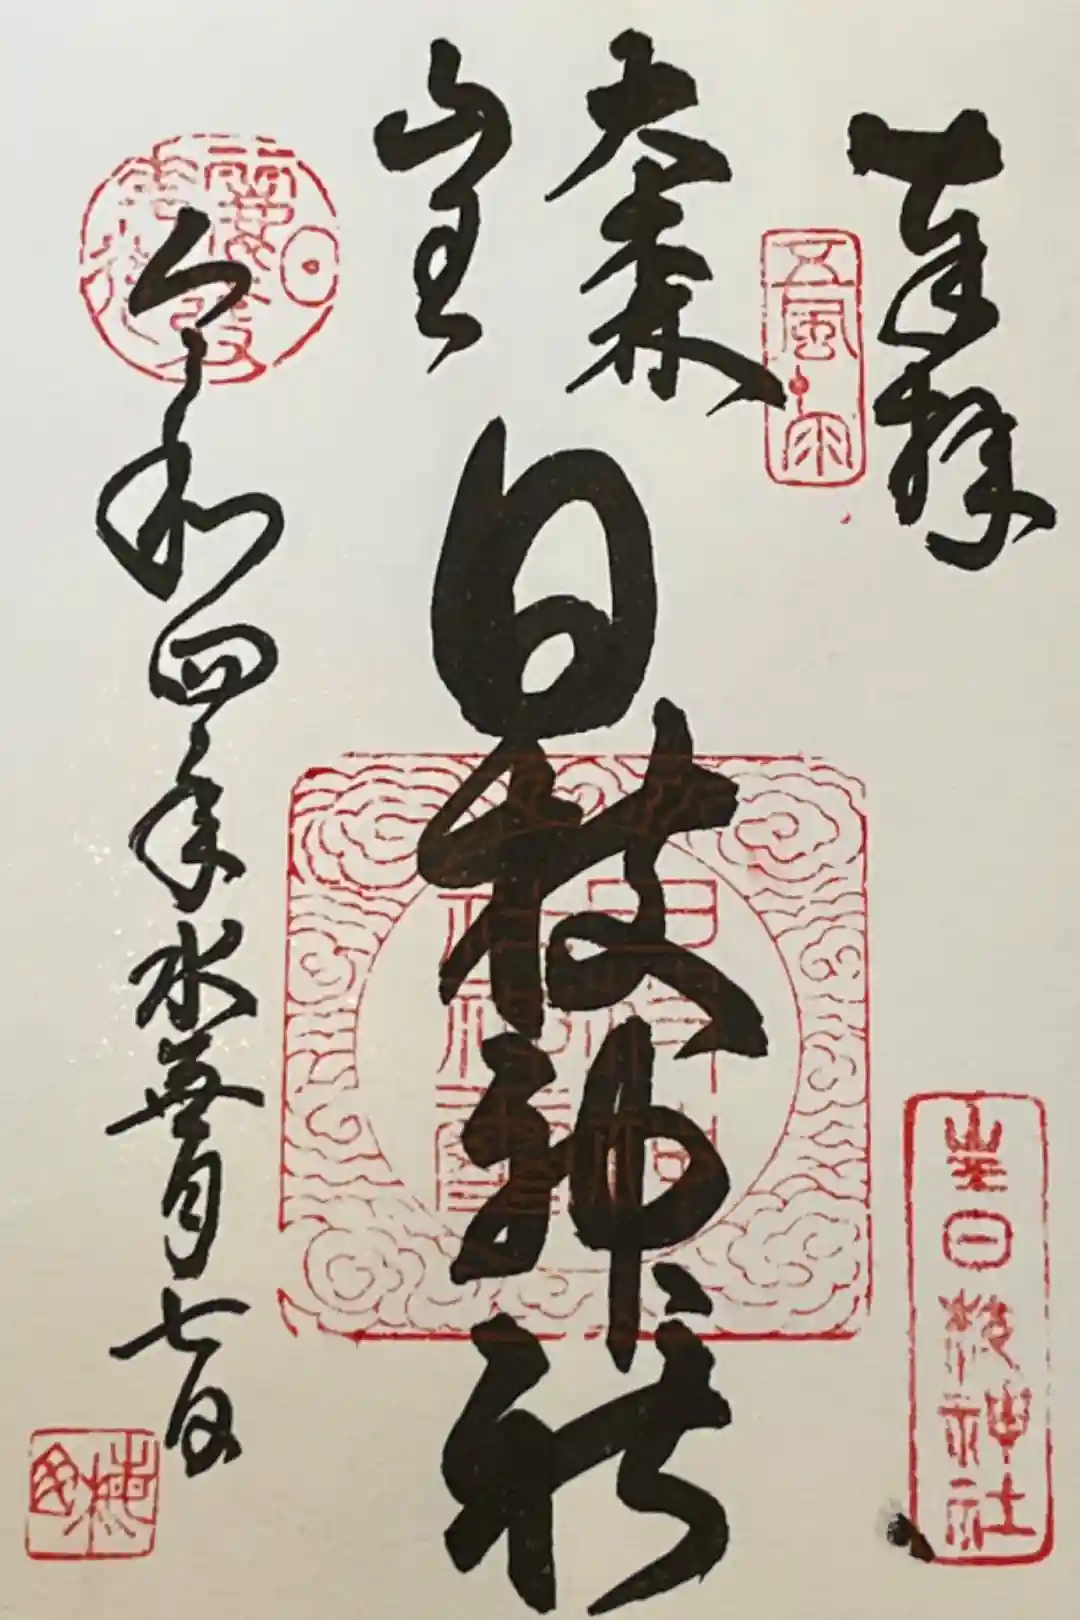 奉拝
五風十雨
大森
山王
日枝神社
山王日枝神社
令和四年水無月七日